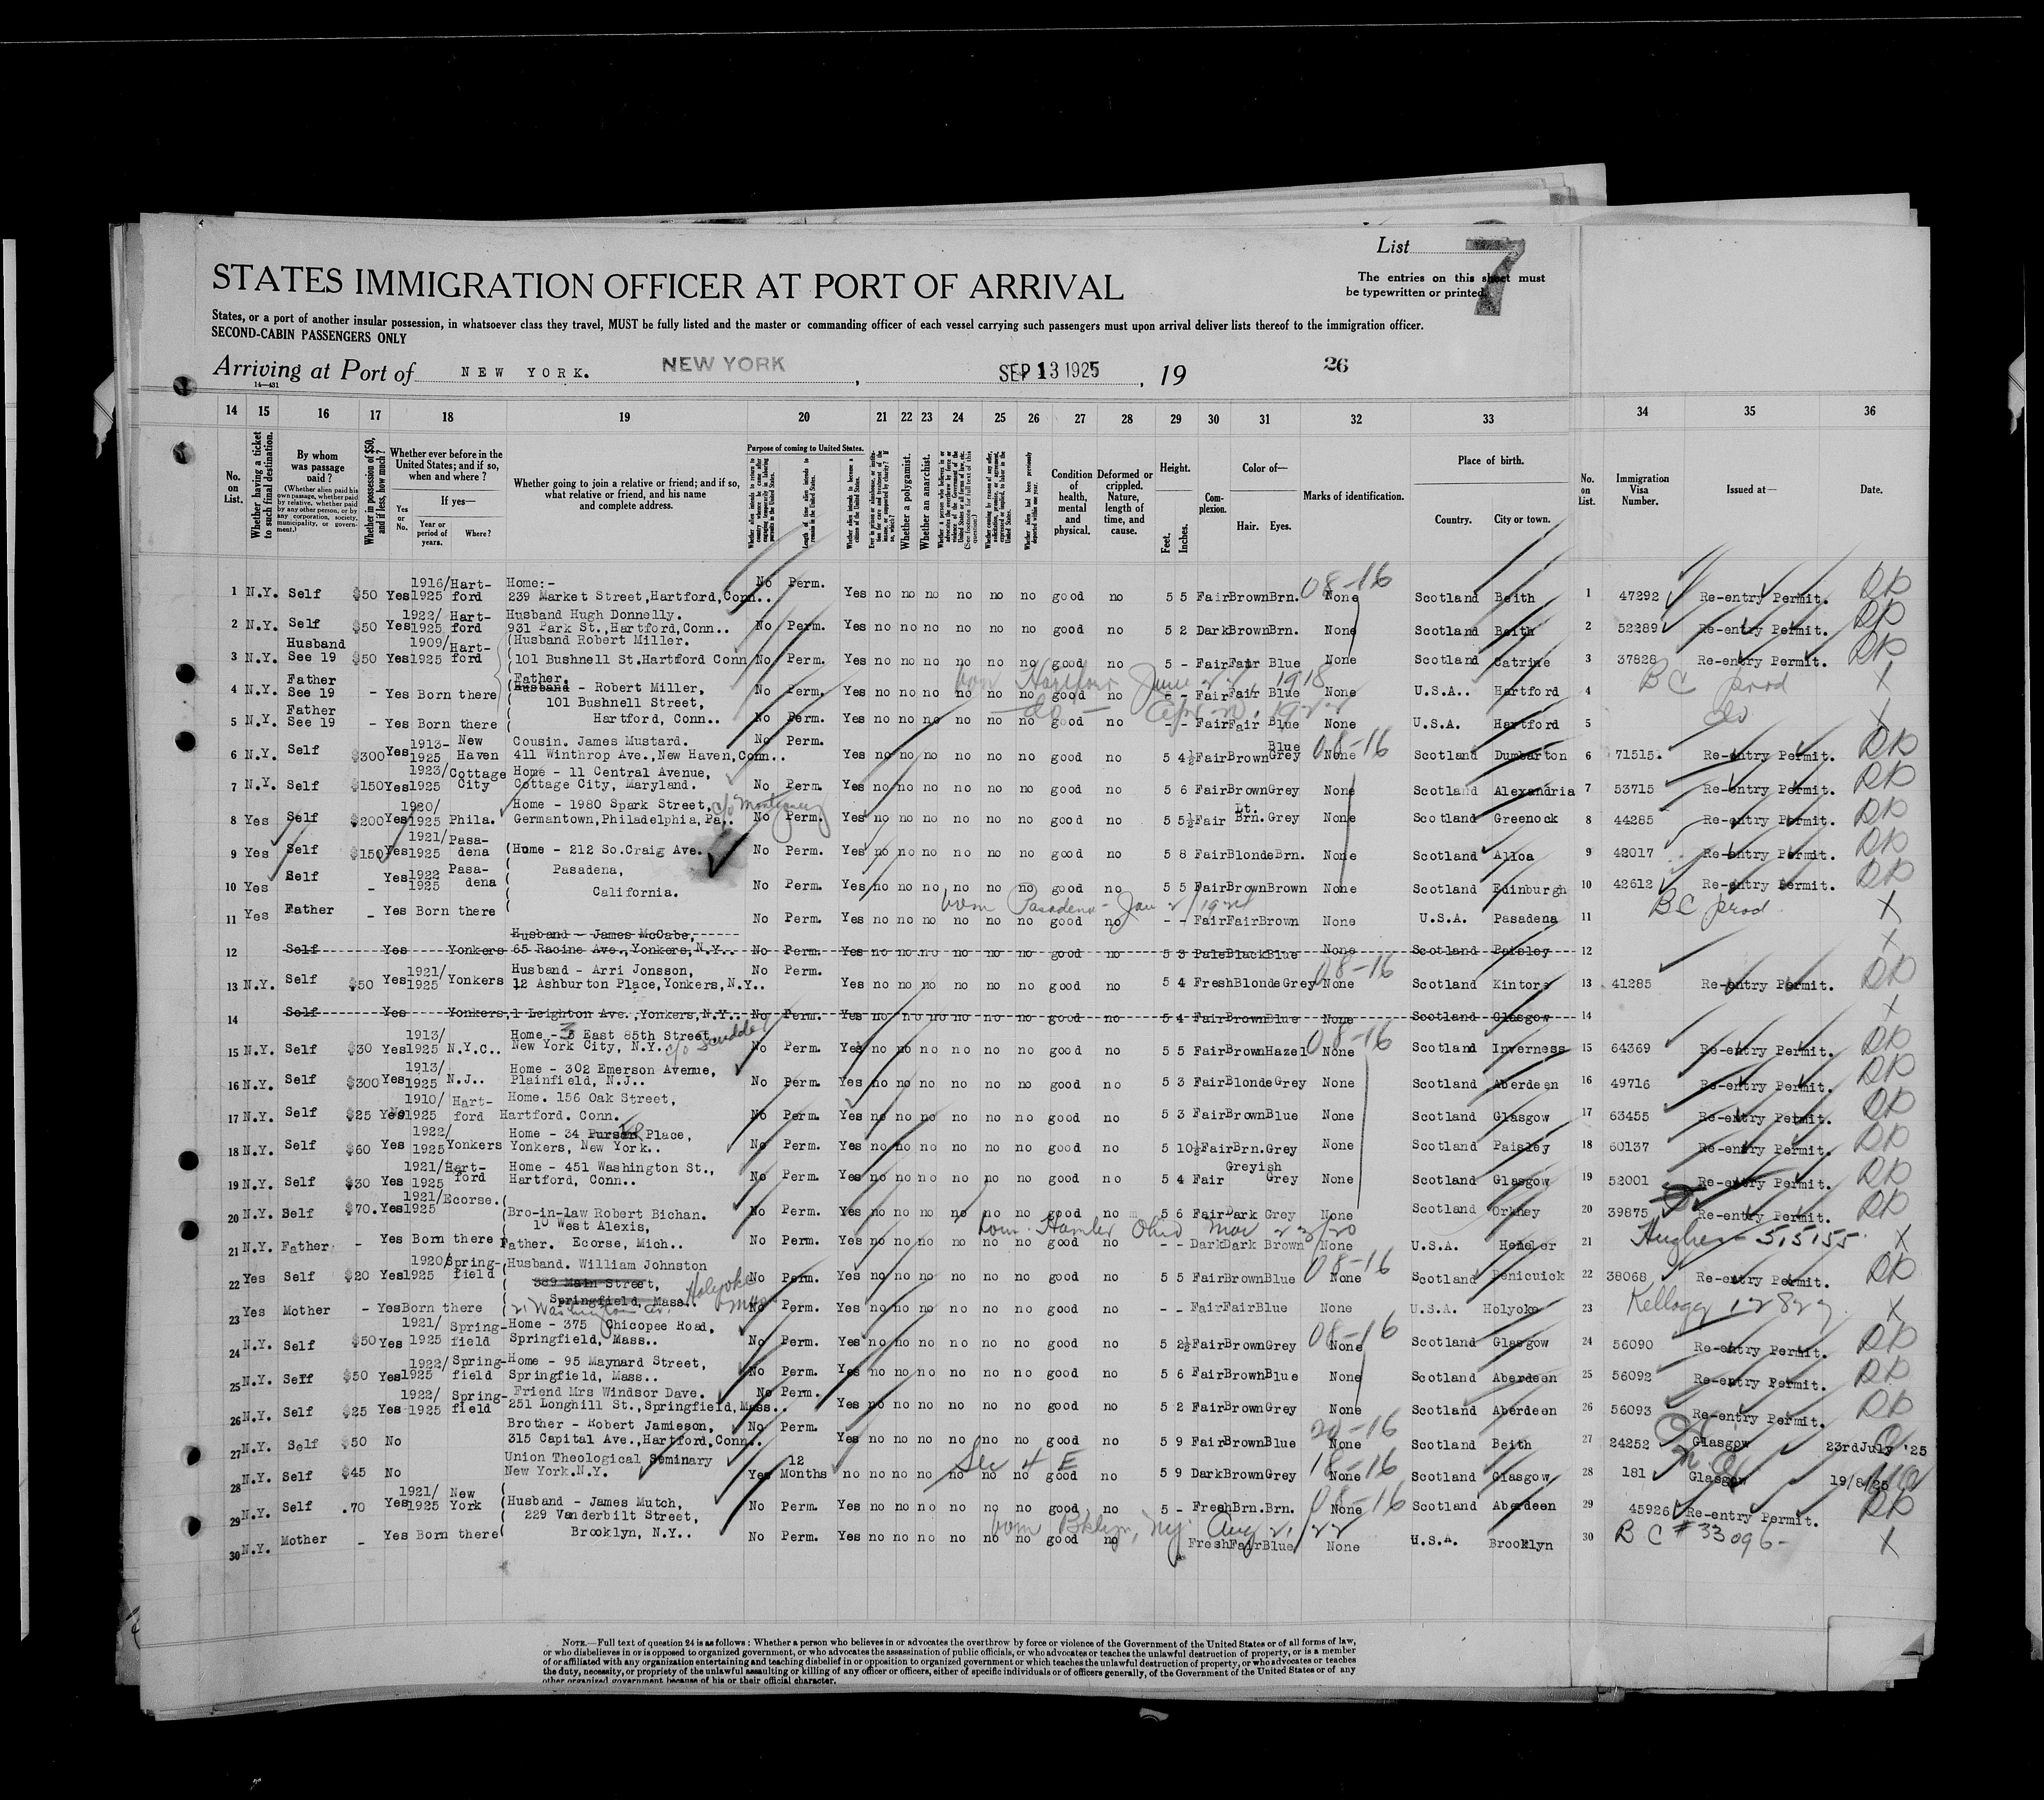 List 7
The entries on this sheet must
be typewritten or printed.
STATES IMMIGRATION OFFICER AT PORT OF ARRIVAL
States, or a port of another insular possession, in whatsoever class they travel, MUST be fully listed and the master or commanding officer of each vessel carrying such passengers must upon arrival deliver lists thereof to the immigration officer.
SECOND-CABIN PASSENGERS ONLY
Arriving at Port of NEW YORK. NEW YORK, SEP 13 1925, 19 26
14—431
14 15 16 17 18 19 20 21 22 23 24 25 26 27 28 29 30 31 32 33 34 35 36
No. on List.
Whether having a ticket to such final destination.
By whom was passage paid?
(Whether alien paid his own passage, whether paid by relative, whether paid by any other person, or by any corporation, society, municipality, or government.)
Whether in possession of $50, and if less, how much?
Whether ever before in the United States; and if so, when and where?
Yes or No.
If yes—
Year or period of years.
Where?
Whether going to join a relative or friend; and if so, what relative or friend, and his name and complete address.
Purpose of coming to United States.
Length of time alien intends to remain in the United States.
Whether alien intends to become a citizen of the United States.
Whether a polygamist.
Whether an anarchist.
Condition of health, mental and physical.
Deformed or crippled. Nature, length of time, and cause.
Height.
Feet.
Inches.
Complexion.
Color of—
Hair. Eyes.
Marks of identification.
Place of birth.
Country. City or town.
No. on List.
Immigration Visa Number.
Issued at—
Date.
1 N.Y. Self $50 Yes 1916/1925 Hartford Home:- 239 Market Street, Hartford, Conn.. No Perm. Yes no no no no no no good no 5 5 Fair Brown Brn. None 08-16 Scotland Beith 1 47292 Re-entry Permit.
2 N.Y. Self $50 Yes 1922/1925 Hartford Husband Hugh Donnelly. 931 Park St., Hartford, Conn.. No Perm. Yes no no no no no no good no 5 2 Dark Brown Brn. None Scotland Beith 2 52289 Re-entry Permit.
3 N.Y. Husband See 19 $50 Yes 1909/1925 Hartford (Husband Robert Miller. 101 Bushnell St. Hartford Conn No Perm. Yes no no no no no no good no 5 - Fair Fair Blue None Scotland Catrine 3 37828 Re-entry Permit.
4 N.Y. Father See 19 - Yes Born there Father. Husband - Robert Miller, No Perm. Yes no no no no no no good no - Fair Fair Blue None U.S.A.. Hartford 4 BC prod X
101 Bushnell Street,
5 N.Y. Father See 19 - Yes Born there Hartford, Conn.. No Perm. Yes no no no no no no good no - - Fair Fair Blue None U.S.A. Hartford 5 do X
6 N.Y. Self $300 Yes 1913-1925 New Haven Cousin. James Mustard. 411 Winthrop Ave., New Haven, Conn.. No Perm. Yes no no no no no no good no 5 4½ Fair Brown Blue Grey None 08-16 Scotland Dumbarton 6 71515. Re-entry Permit.
7 N.Y. Self $150 Yes 1923/1925 Cottage City Home - 11 Central Avenue, Cottage City, Maryland. No Perm. Yes no no no no no no good no 5 6 Fair Brown Grey None Scotland Alexandria 7 53715 Re-entry Permit.
8 Yes Self $200 Yes 1920/1925 Phila. Home - 1980 Spark Street, Germantown, Philadelphia, Pa.. c/o Montgomery No Perm. Yes no no no no no no good no 5 5½ Fair Lt. Brn. Grey None Scotland Greenock 8 44285 Re-entry Permit.
9 Yes Self $150 Yes 1921/1925 Pasadena (Home - 212 So. Craig Ave. No Perm. Yes no no no no no no good no 5 8 Fair Blonde Brn. None Scotland Alloa 9 42017 Re-entry Permit.
10 Yes Self - Yes 1922 1925 Pasadena Pasadena, California. No Perm. Yes no no no no no no good no 5 5 Fair Brown Brown None Scotland Edinburgh 10 42612 Re-entry Permit.
11 Yes Father - Yes Born there No Perm. Yes no no no no no no good no - - Fair Fair Brown None U.S.A. Pasadena 11 BC prod X
12 Self Yes Yonkers Husband - James McCabe, 65 Racine Ave., Yonkers, N.Y.. No Perm. Yes no no no no no no good no 5 3 Pale Black Blue None Scotland Paisley 12 X
13 N.Y. Self $50 Yes 1921/1925 Yonkers Husband - Arri Jonsson, 12 Ashburton Place, Yonkers, N.Y.. No Perm. Yes no no no no no no good no 5 4 Fresh Blonde Grey None 08-16 Scotland Kintore 13 41285 Re-entry Permit.
14 Self Yes Yonkers, 1 Leighton Ave., Yonkers, N.Y.. No Perm. Yes no no no no no no good no 5 4 Fair Brown Blue None Scotland Glasgow 14 X
15 N.Y. Self $30 Yes 1913/1925 N.Y.C.. Home - 3 East 85th Street, New York City, N.Y. c/o Scudder No Perm. Yes no no no no no no good no 5 5 Fair Brown Hazel None 08-16 Scotland Inverness 15 64369 Re-entry Permit.
16 N.Y. Self $300 Yes 1913/1925 N.J.. Home - 302 Emerson Avenue, Plainfield, N.J.. No Perm. Yes no no no no no no good no 5 3 Fair Blonde Grey None Scotland Aberdeen 16 49716 Re-entry Permit.
17 N.Y. Self $25 Yes 1910/1925 Hartford Home. 156 Oak Street, Hartford. Conn. No Perm. Yes no no no no no no good no 5 3 Fair Brown Blue None Scotland Glasgow 17 63455 Re-entry Permit.
18 N.Y. Self $60 Yes 1922/1925 Yonkers Home - 34 Place, Yonkers, New York.. No Perm. Yes no no no no no no good no 5 10½ Fair Brn. Grey None Scotland Paisley 18 60137 Re-entry Permit.
19 N.Y. Self $30 Yes 1921/1925 Hartford Home - 451 Washington St., Hartford, Conn.. No Perm. Yes no no no no no no good no 5 4 Fair Greyish Grey None Scotland Glasgow 19 52001 Re-entry Permit.
20 N.Y. Self $70. Yes 1921/1925 Ecorse. (Bro-in-law Robert Bichan. No Perm. Yes no no no no no no good no 5 6 Fair Dark Grey None Scotland Orkney 20 39875 Re-entry Permit.
10 West Alexis,
21 N.Y. Father - Yes Born there Father. Ecorse, Mich.. No Perm. Yes no no no no no no good no - - Dark Dark Brown None U.S.A. 21 Hughes - 515155 X
22 Yes Self $20 Yes 1920/1925 Springfield Husband. William Johnston 389 Main Street, No Perm. Yes no no no no no no good no 5 5 Fair Brown Blue None 08-16 Scotland Penicuick 22 38068 Re-entry Permit.
Springfield, Mass.. Holyoke Mass
23 Yes Mother - Yes Born there Washington No Perm. Yes no no no no no no good no - - Fair Fair Blue None U.S.A. Holyoke 23 Kellogg X
24 N.Y. Self $50 Yes 1921/1925 Springfield Home - 375 Chicopee Road, Springfield, Mass.. No Perm. Yes no no no no no no good no 5 2½ Fair Brown Grey None 08-16 Scotland Glasgow 24 56090 Re-entry Permit.
25 N.Y. Self $50 Yes 1922/1925 Springfield Home - 95 Maynard Street, Springfield, Mass.. No Perm. Yes no no no no no no good no 5 6 Fair Brown Blue None Scotland Aberdeen 25 56092 Re-entry Permit.
26 N.Y. Self $25 Yes 1922/1925 Springfield Friend Mrs Windsor Dave. 251 Longhill St., Springfield, Mass.. No Perm. Yes no no no no no no good no 5 2 Fair Brown Grey None Scotland Aberdeen 26 56093 Re-entry Permit.
27 N.Y. Self $50 No Brother - Robert Jamieson, 315 Capital Ave., Hartford, Conn.. No Perm. Yes no no no no no no good no 5 9 Fair Brown Blue None 20-16 Scotland Beith 27 24252 Glasgow 23rd July '25
28 N.Y. Self $45 No Union Theological Seminary New York. N.Y. Yes 12 Months no no no no no no no good no Sec 4 E 5 9 Dark Brown Grey None 18-16 Scotland Glasgow 28 181 Glasgow 19/8/25
29 N.Y. Self .70 Yes 1921/1925 New York (Husband - James Mutch, 229 Vanderbilt Street, No Perm. Yes no no no no no no good no 5 - Fresh Brn. Brn. None 08-16 Scotland Aberdeen 29 45926 Re-entry Permit.
30 N.Y. Mother - Yes Born there Brooklyn, N.Y.. No Perm. Yes no no no no no no good no Fresh Fair Blue None U.S.A. Brooklyn 30 BC #33096- X
NOTE.—Full text of question 24 is as follows: Whether a person who believes in or advocates the overthrow by force or violence of the Government of the United States or of all forms of law,
or who disbelieves in or is opposed to organized government, or who advocates the assassination of public officials, or who advocates or teaches the unlawful destruction of property, or is a member
of or affiliated with any organization entertaining and teaching disbelief in or opposition to organized government or which teaches the unlawful destruction of property, or who advocates or teaches
the duty, necessity, or propriety of the unlawful assaulting or killing of any officer or officers, either of specific individuals or of officers generally, of the Government of the United States or of any
other organized government because of his or their official character.